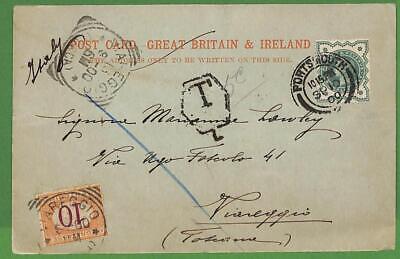 Italy
POST CARD. GREAT BRITAIN & IRELAND
THE ADDRESS ONLY TO BE WRITTEN ON THIS SIDE.
VIAREGGIO
PORTSMOUTH
10 15
00
T
Signora Marianna Lawley
Via Ugo Foscolo 41
Viareggio
(Toscana)
10
VIAREGGIO